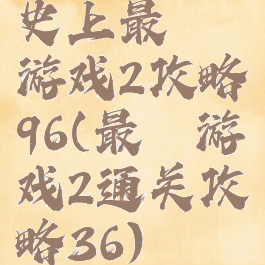 史上最
游戏2攻略
96(最 游
戏2通关攻
略36)